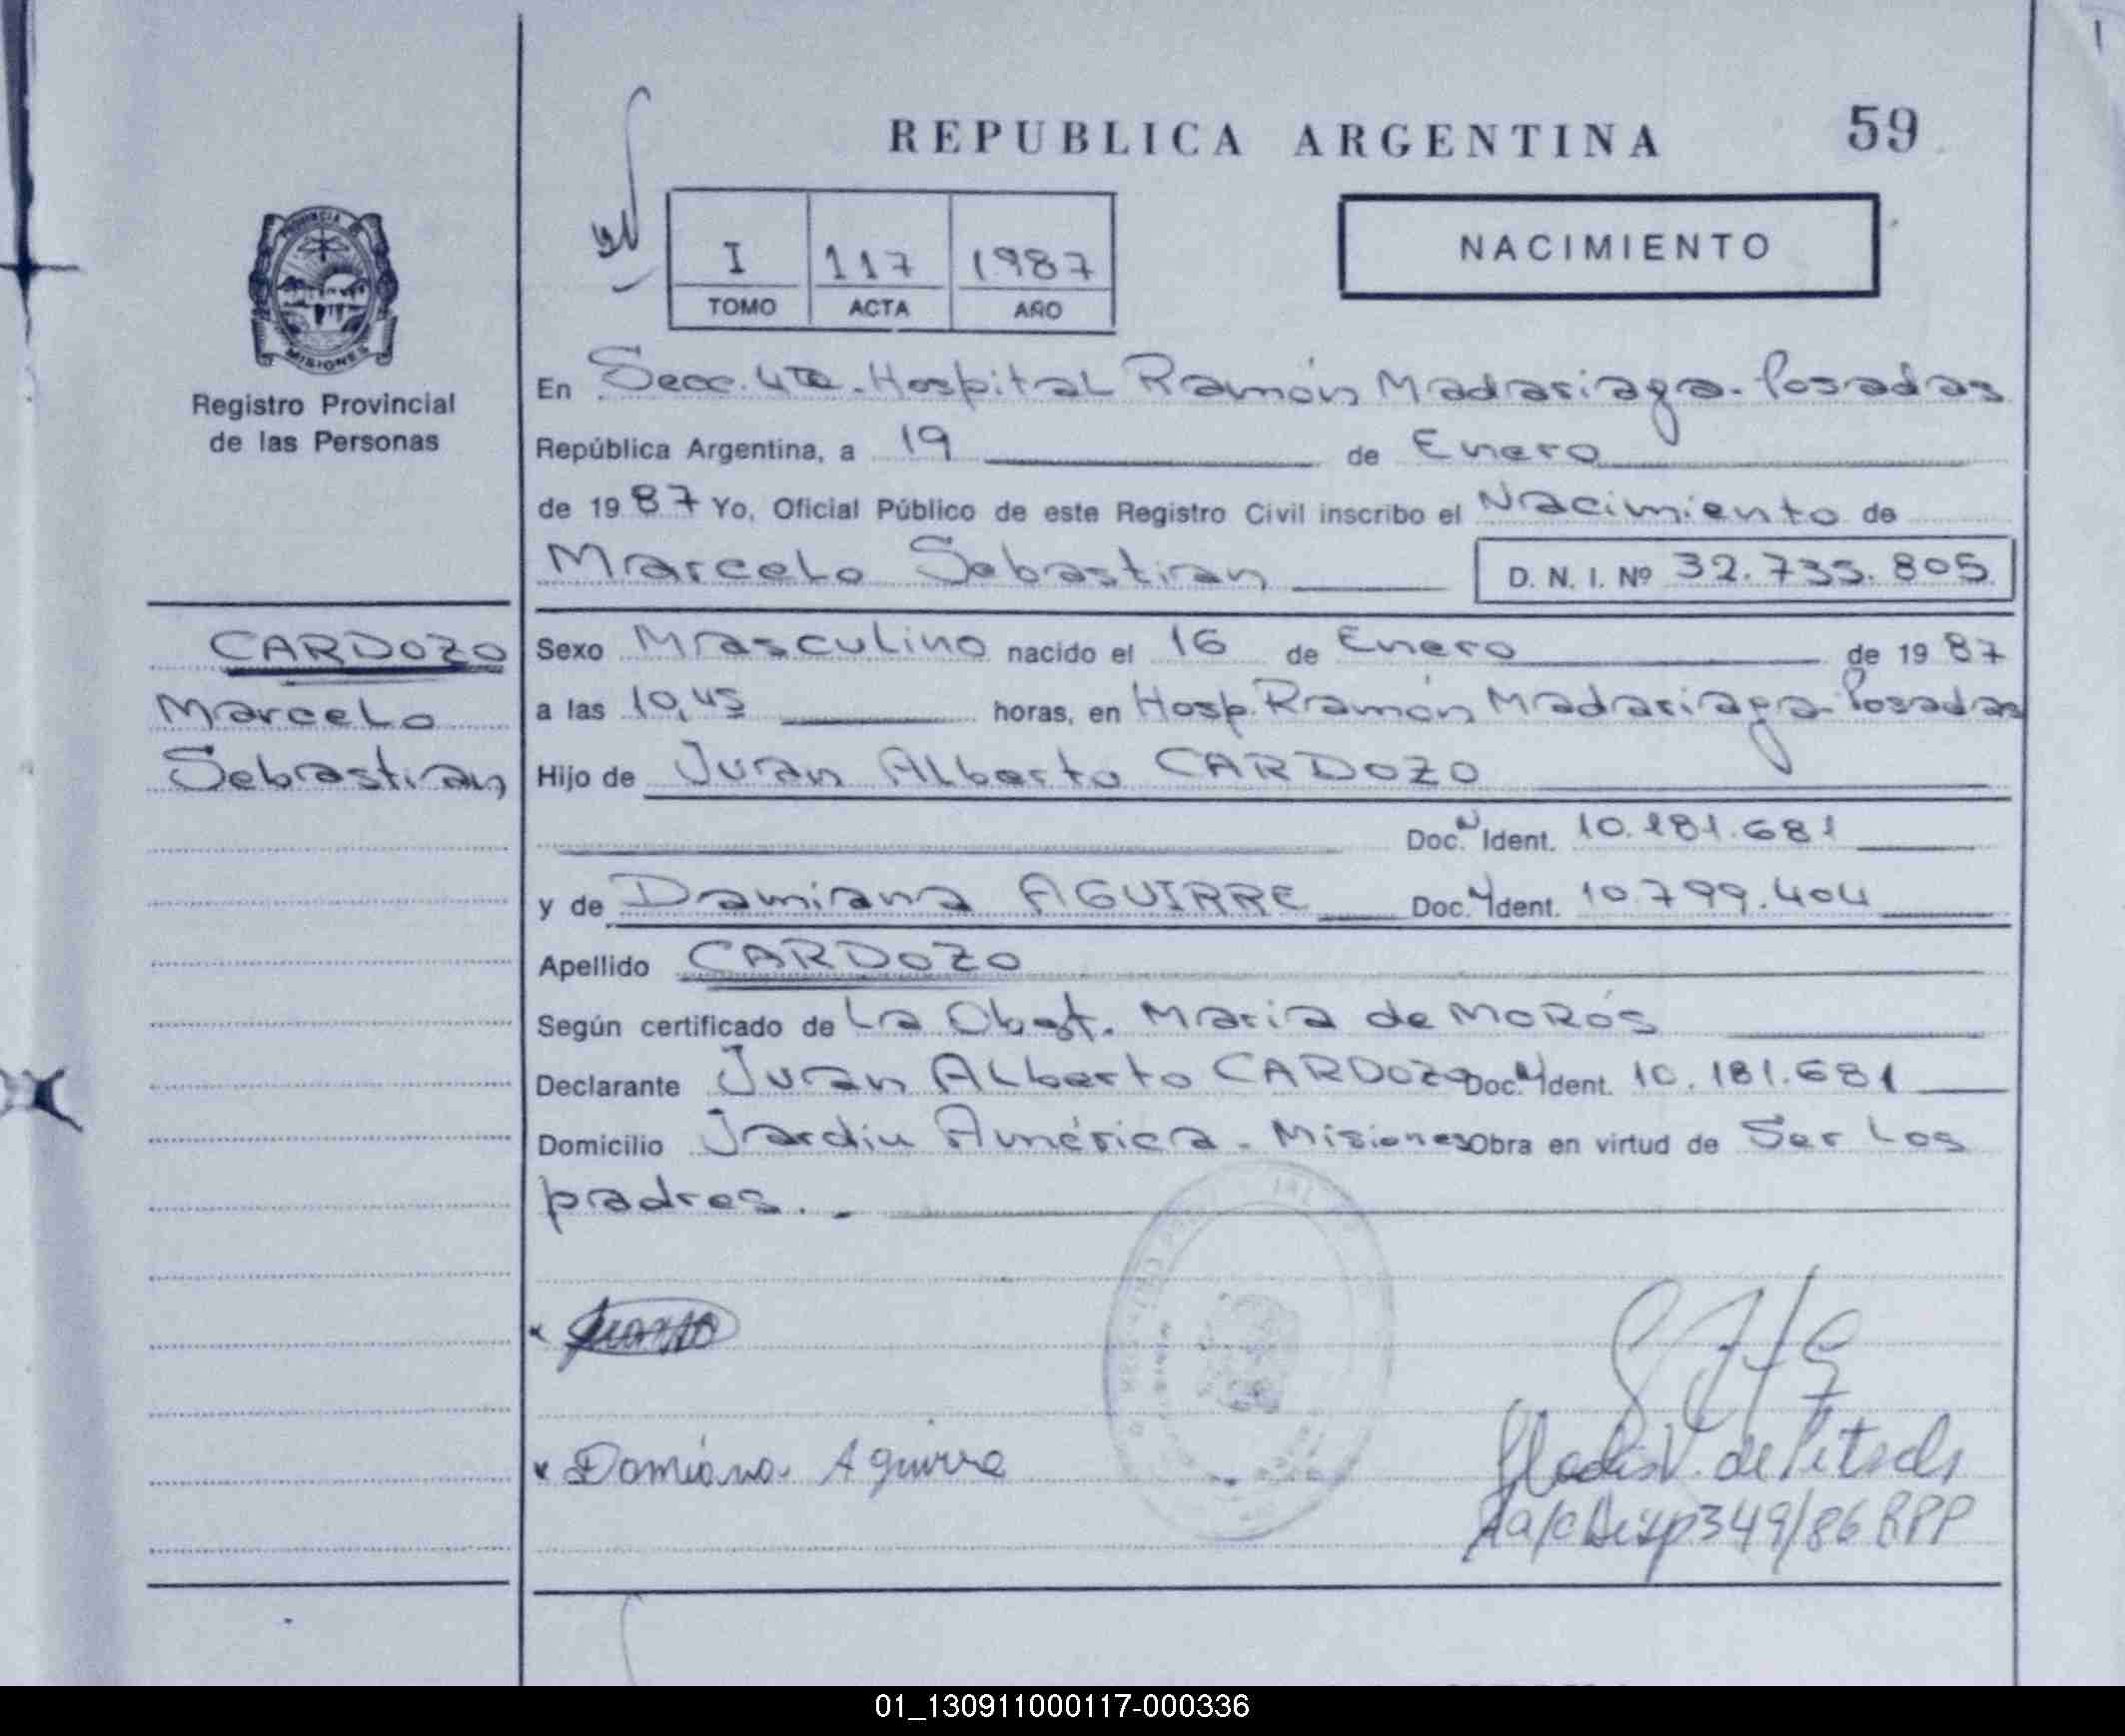 REPUBLICA ARGENTINA 59
PROVINCIA DE
MISIONES
Registro Provincial
de las Personas
I 117 1987
TOMO ACTA AÑO
NACIMIENTO
En Secc. 4ta. Hospital Ramón Madariaga - Posadas
República Argentina, a 19 de Enero
de 1987 Yo, Oficial Público de este Registro Civil inscribo el Nacimiento de
Marcelo Sebastian D. N. I. Nº 32.735.805
CARDOZO
Marcelo
Sebastian
Sexo Masculino nacido el 16 de Enero de 1987
a las 10,45 horas, en Hosp. Ramón Madariaga - Posadas
Hijo de Juan Alberto CARDOZO
Doc. N Ident. 10.181.681
y de Damiana AGUIRRE Doc. N Ident. 10.799.404
Apellido CARDOZO
Según certificado de La Obst. Maria de MORÓS
Declarante Juan Alberto CARDOZO Doc. N Ident. 10.181.681
Domicilio Jardin América - Misiones Obra en virtud de Ser Los
padres. -
Damiana Aguirre
Gladis V. de
349/86 RPP
01_130911000117-000336